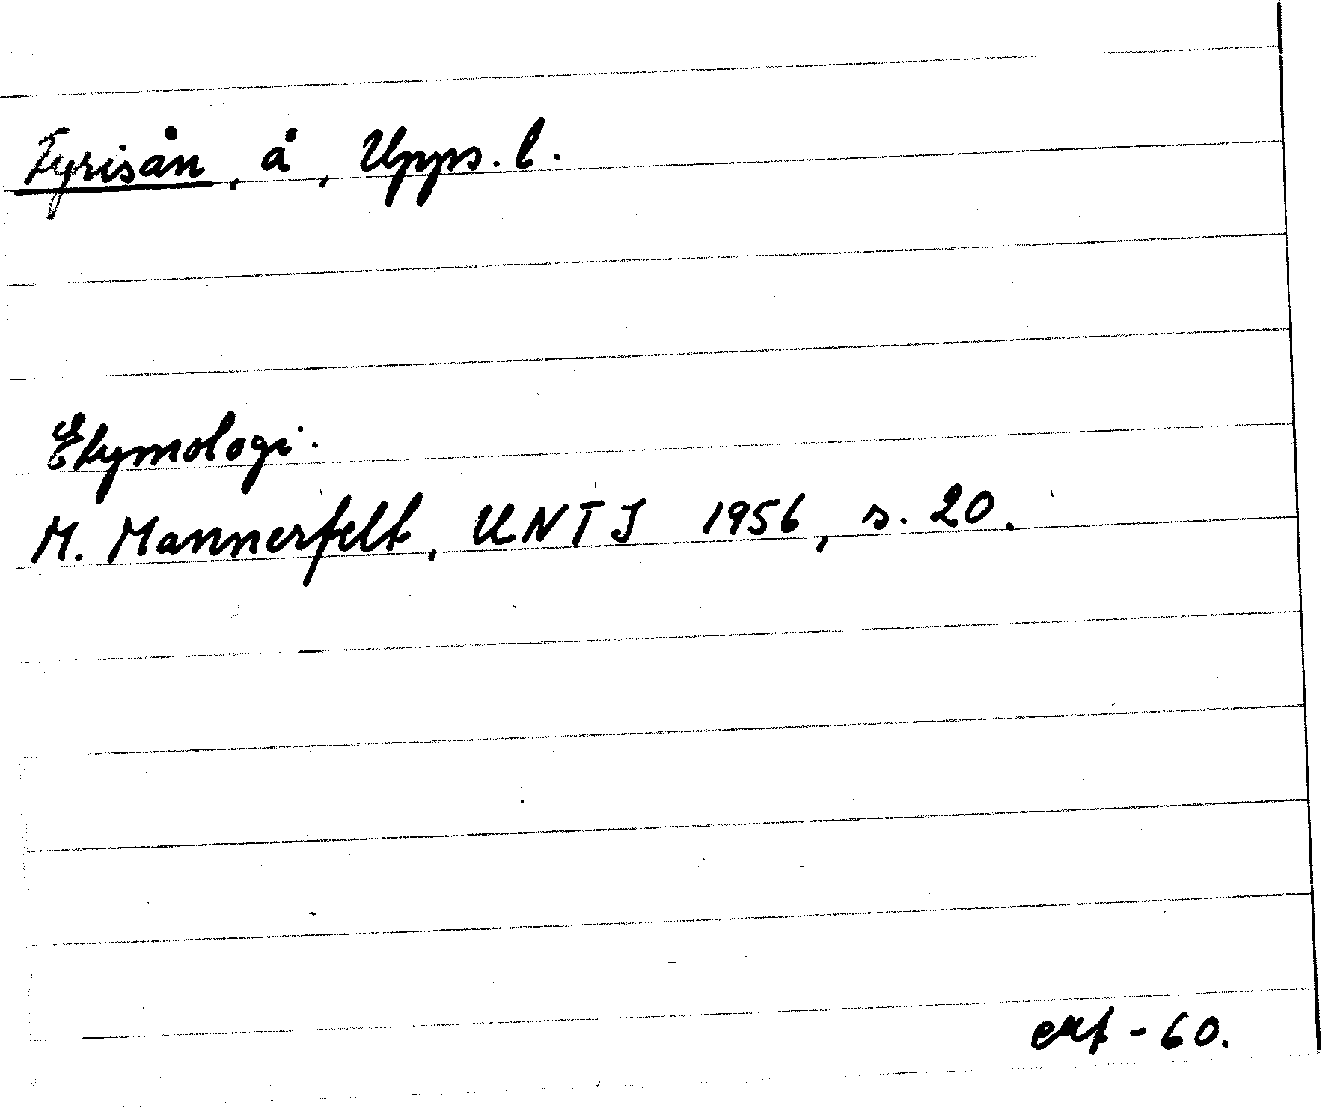 Fyrisån, å, Upps. l.
Etymologi.
M. Mannerfelt, UNTJ 1956, s. 20.
- 60.